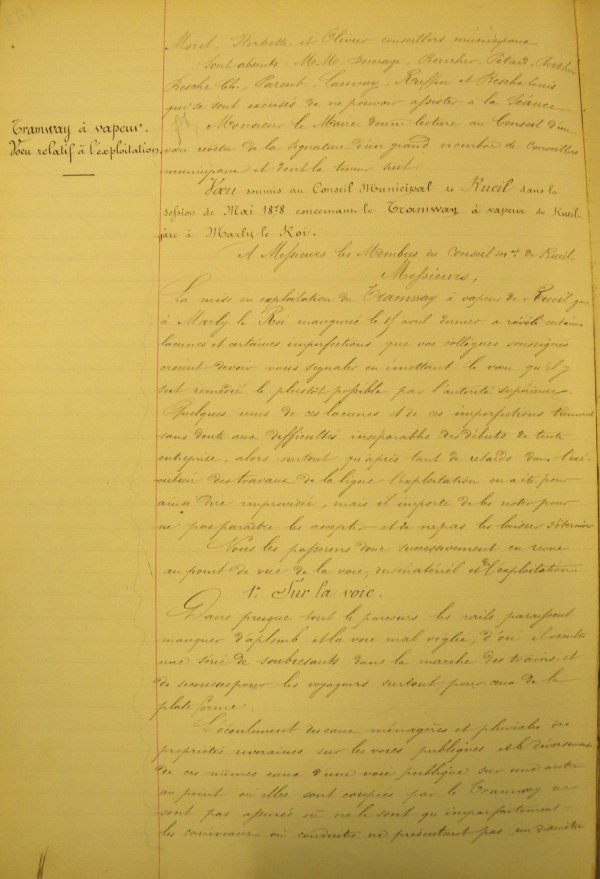 Morel, Herbette et Olivier conseillers municipaux
Sont absents: M.M. Bercher, Pétard,
Resche Ch., Parent, Launay, et Resche Louis
qui se sont excusés de ne pouvoir assister à la Séance
Tramway à vapeur.
Vœu relatif à l'exploitation
Monsieur le Maire donne lecture au Conseil d'un
vœu revêtu de la signature d'un grand nombre de Conseillers
municipaux et dont la teneur suit.
Vœu soumis au Conseil Municipal de Rueil dans la
session de Mai 1878 concernant le Tramway à vapeur de Rueil
gare à Marly le Roi.
A Messieurs les Membres du Conseil m.al de Rueil
Messieurs,
La mise en exploitation du Tramway à vapeur de Rueil gare
à Marly le Roi inaugurée le avril dernier a révélé certaines
lacunes et certaines imperfections que vos collègues soussignés
croient devoir vous signaler en émettant le vœu qu'il y
soit remédié le plustôt possible par l'autorité supérieure.
Quelques unes de ces lacunes et de ces imperfections tiennent
sans doute aux difficultés inséparables des débuts de toute
entreprise, alors surtout qu'après tant de retards dans l'exé-
cution des travaux de la ligne l'exploitation en a été pour
ainsi dire improvisée, mais il importe de les noter pour
ne pas paraître les accepter et de ne pas les laisser s'éterniser
Nous les passerons donc successivement en revue
au point de vue de la voie, du matériel et de l'exploitation.
1° Sur la voie.
Dans presque tout le parcours les rails paraissent
manquer d'aplomb et la voie mal réglée, d'où il résulte
une série de soubresauts dans la marche des trains et
de secousses pour les voyageurs surtout pour ceux de la
plate forme.
L'écoulement des eaux ménagères et pluviales des
propriétés riveraines sur les voies publiques et le déversement
de ces mêmes eaux d'une voie publique sur une autre
au point où elles sont coupées par le Tramway ne
sont pas assurés ou ne le sont qu'imparfaitement.
les caniveaux ou conduites ne présentant pas un diamètre